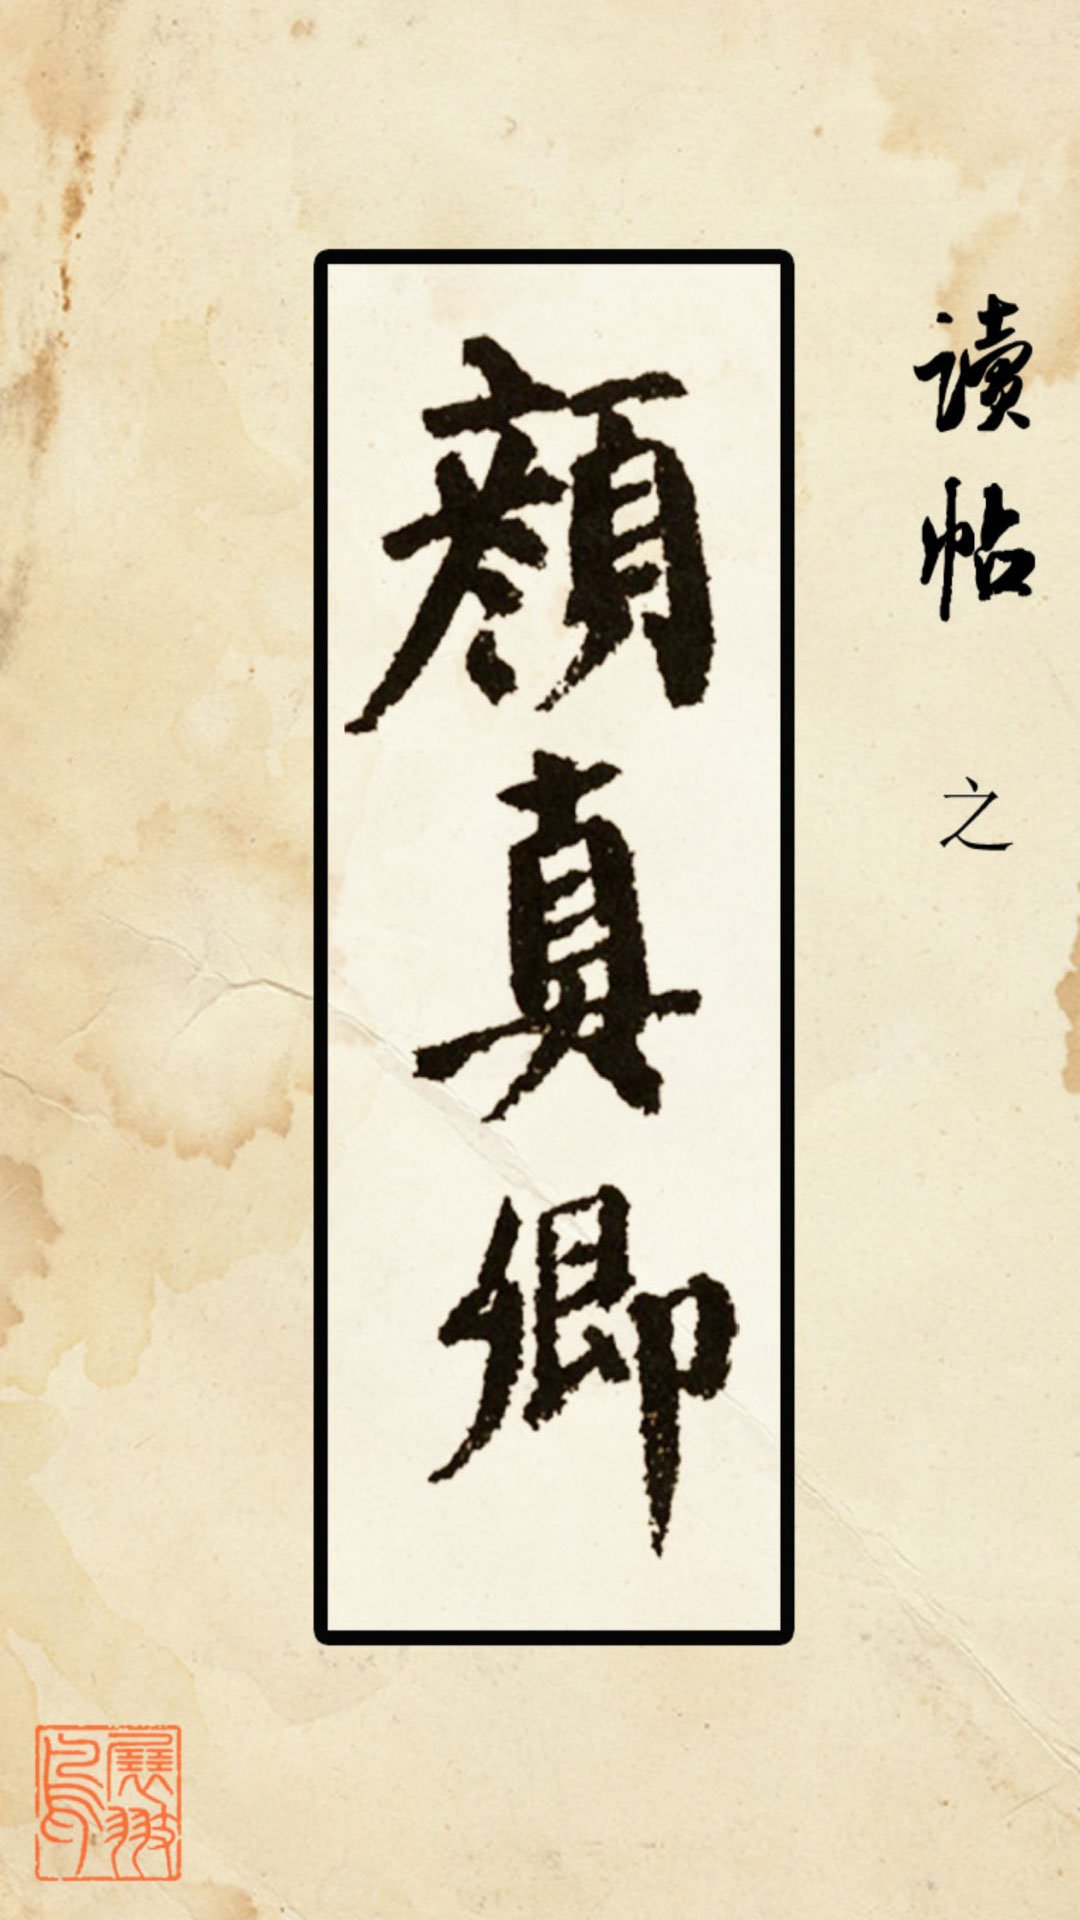 读帖之
颜真卿